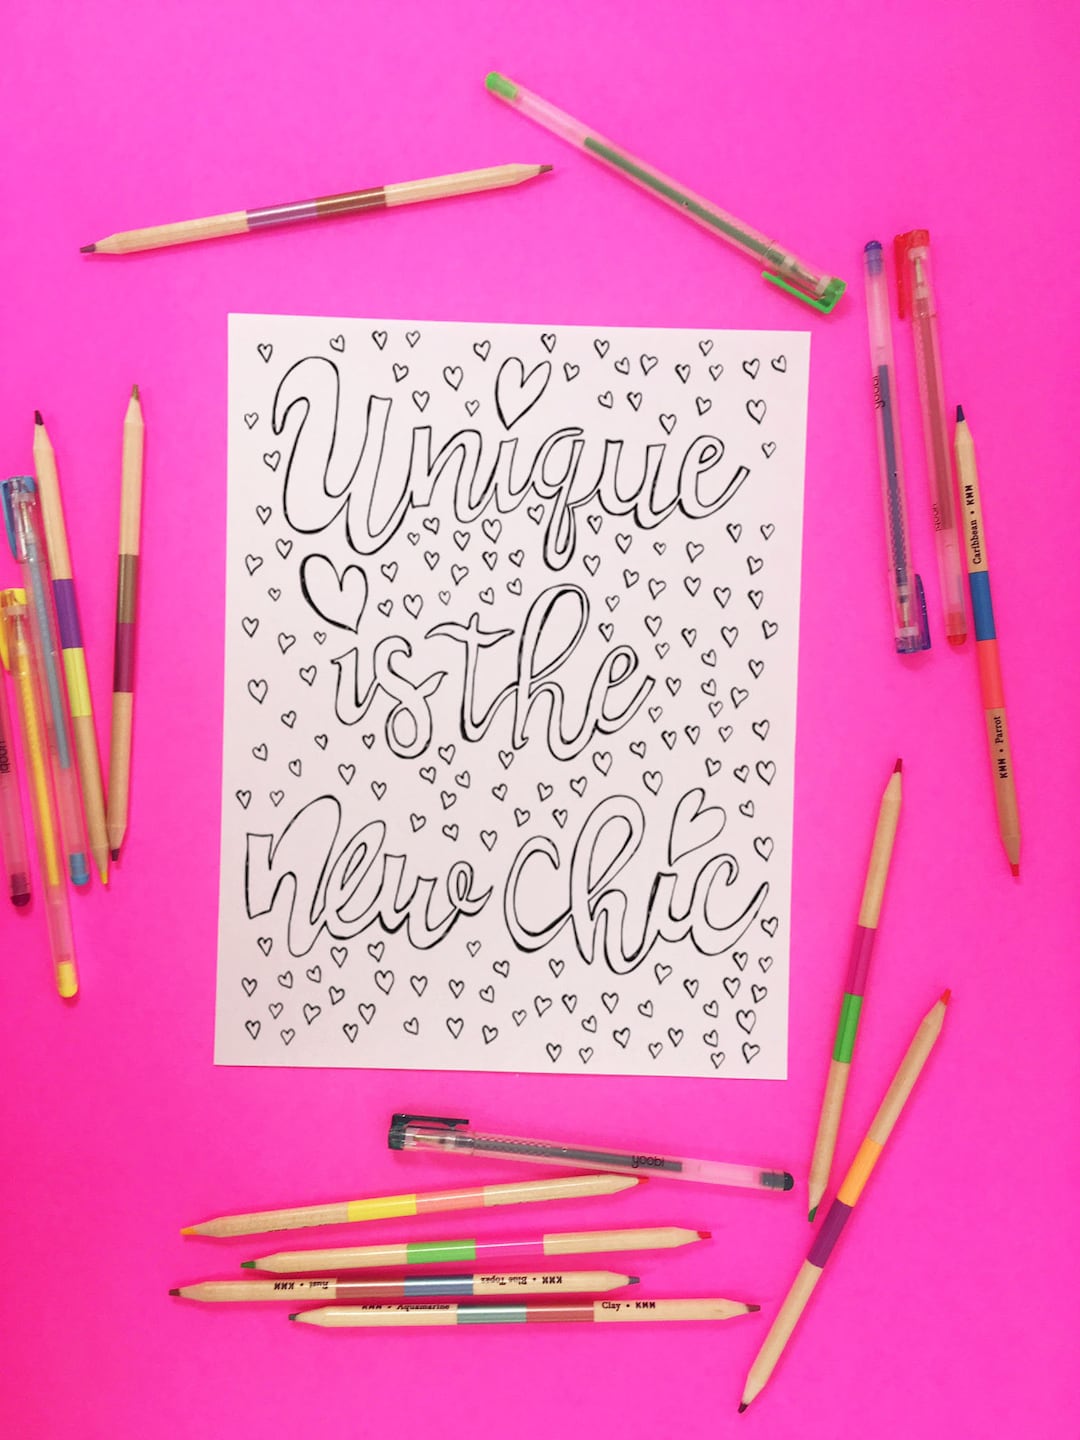 Unique
is the
New Chic
yoobi
yoobi
Caribbean • KMM
KMM • Parrot
yoobi
yoobi
Rust • KMM
KMM • Blue Topaz
KMM • Aquamarine
Clay • KMM